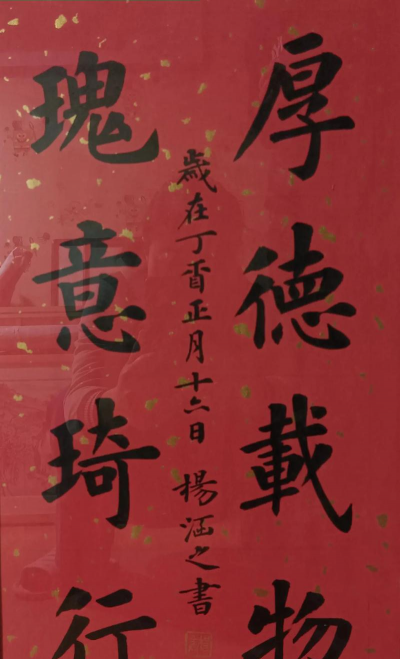 厚德載物
歲在丁酉正月十六日 楊涵之書
瑰意琦行